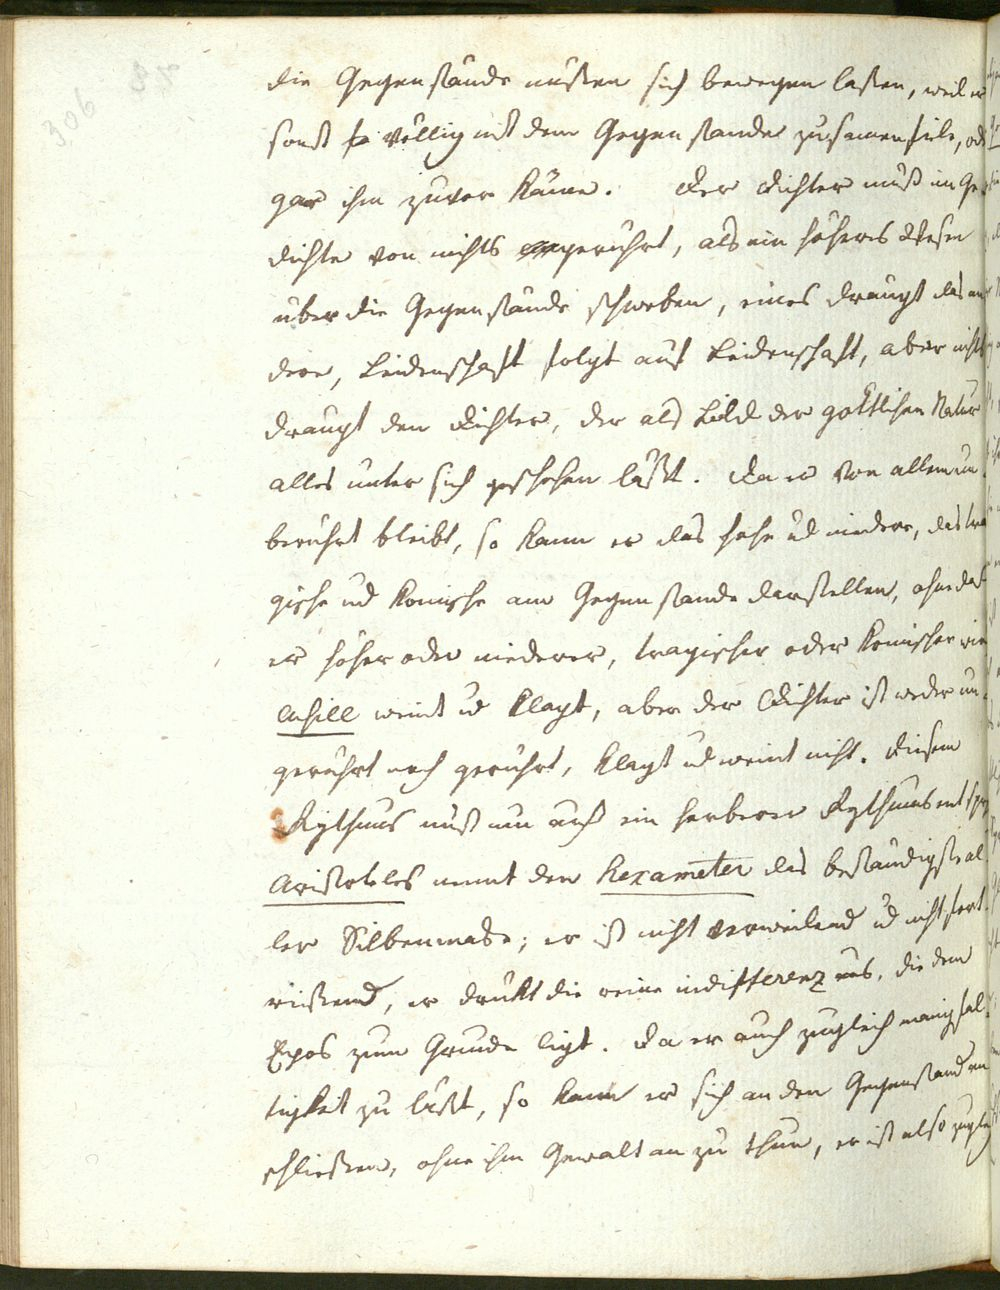 306
die Gegenstände müßen sich bewegen laßen, weil er
sonst völlig mit dem Gegenstande zusamenfiele, od
gar ihm zuvor käme. Der Dichter muß im Ge
dichte von nichts gerührt, als ein höheres Wesen
über die Gegenstände schweben, eines drängt das an
dere, Leidenschaft folgt auf Leidenschaft, aber nichts
drängt den Dichter, der als Bild der göttlichen Natur
alles unter sich geschehen läßt. Da er von allem un
berührt bleibt, so kann er das hohe ud niedere, das tra
gische und komische am Gegenstande darstellen, ohne daß
er höher oder niederer, tragischer oder komischer wird
Achill weint ud klagt, aber der Dichter ist weder un
gerührt noch gerührt, klagt ud weint nicht. Diesem
Rythmus muß nun auch ein herberer Rythmus entspre
Aristoteles nennt den Hexameter das beständigste al
ler Silbenmase; er ist nicht verweilend ud nicht fort
reißend, er drückt die reine indifferenz aus, die dem
Epos zum Grunde ligt. Da er auch zugleich manigfal
tigkeit zu läßt, so kann er sich an den Gegenstand an
schließen, ohne ihm Gewalt an zu thun, er ist also zugle